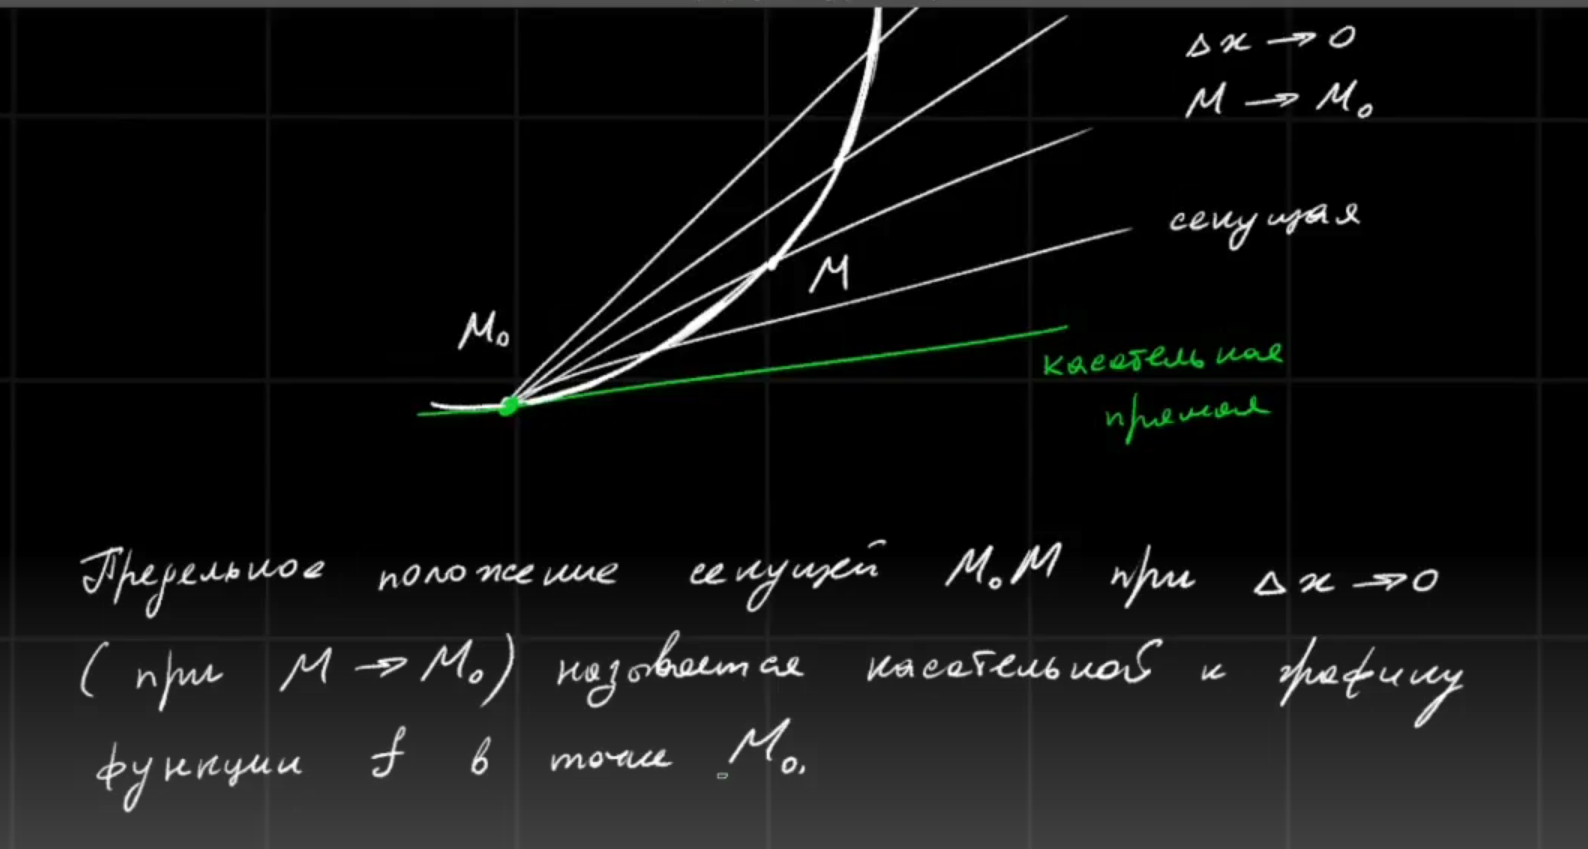 Δx → 0
M → M₀
секущая
M
M₀
касательная
прямая
Предельное положение секущей M₀M при Δx → 0
(при M → M₀) называется касательной к графику
функции f в точке M₀.